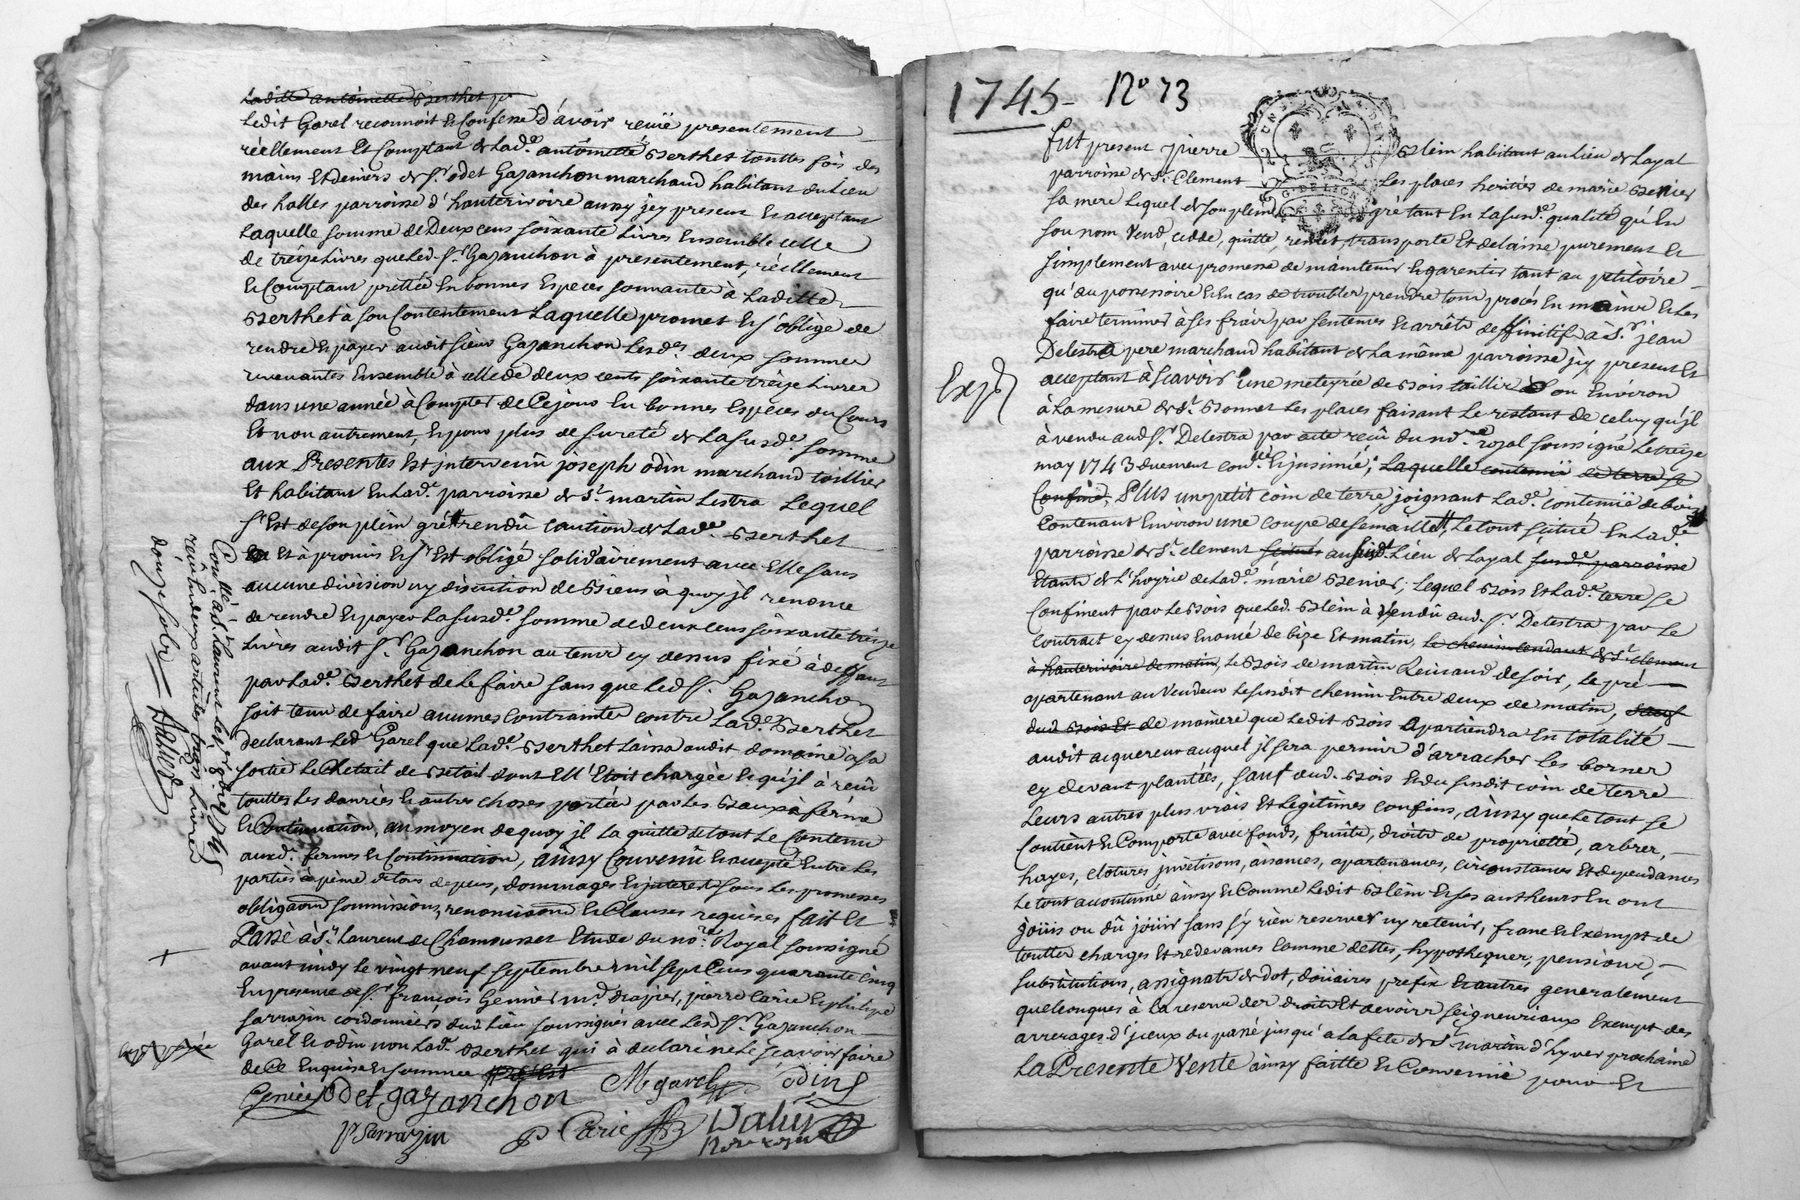 Laditte antoinette Berthet
Ledit Garel reconnoit et Confesse d'avoir receü presentement
réellement et Comptant de lad.e antoinette Berthet touttes fois des
mains et deniers de s.r odet Gazanchon marchand habitant du Lieu
des halles parroisse d'hauterivoire aussy jcy present et acceptant
Laquelle somme de Deux cens soixante Livres ensemble celle
de treize livres que led. s.r Gazanchon à presentement, réellement
et Comptant prettée en bonnes Especes sonnantes à Laditte
Berthet à son Contentement Laquelle promet et s'oblige de
rendre et payer audit sieur Gazanchon Lesd.es deux sommes
revenantes Ensemble à celle de deux cents soixante treize Livres
dans une année à Compter de Ce jour En bonnes Especes du Cours
Et non autrement, et pour plus de sureté de La susd.e somme
aux Presentes Est jntervenü joseph odin marchand toillier
Et habitant En Lad.e parroisse de S.t martin Lestra Lequel
s'Est de son plein gré rendû caution de Lad.e Berthet
Et à promis et s'Est obligé solidairement avec Elle sans
aucune division ny discution de Biens à quoy jl renonce
de rendre et payer La susd.e somme de deux cens soixante treize
Livres audit s.r Gazanchon au terme cy dessus fixé à deffaut
par Lad.e Berthet de Le faire sans que Led. s.r Gazanchon
soit tenu de faire aucunes contraintes contre Lad.e Berthet
Declarant Led. Garel que Lad.e Berthet Laissa audit domaine a sa
sortie Le Chetail de Betail dont Ell'Etoit chargée et qu'jl à reçû
touttes Les danrées et autres choses portées par Les Baux à ferme
et Continuation, au moyen de quoy jl La quitte de tout Le Contenu
auxd. fermes et Continuation, ainsy Convenû et accepté Entre Les
parties à peine de tous depens, dommages et jnterest sous Les promesses
obligaôns soumissions, renonciaôns et Clauses requises fait et
Passé à S.t Laurent de Chamousset Etude du no.re Royal soussigné
avant midy Le vingt neuf septembre mil sept Cens quarante Cinq
En presence de s.r françois Genier m.d drapier, pierre Carie et philipe
sarrazin cordonniers dud. Lieu soussignés avec Led. s.r Gazanchon
Garel et odin non Lad.e Berthet qui à declaré ne Le sçavoir faire
de Ce Enquise et sommée
odet gazanchon M garel odin
p sarrazin P Carie
Conllé à S.t Laurent le
reçû
douze sols
1745 - N.o 73
Fut present pierre Blein habitant au Lieu de Layal
parroisse de S.t Clement Les places heritier de marie Benier
sa mere Lequel de son plein gré tant En La susd.e qualité qu'En
son nom Vend, cedde, quitte, remet, transporte Et delaisse purement Et
simplement avec promesse de maintenir et garentir tant au petitoire
qu'au possessoire et En cas de troubles prendre tous procés En main et Les
faire terminer à ses frais par sentences et arrêts deffinitifs à s.r jean
Delestra pere marchand habitant de La même parroisse jcy present Et
acceptant à sçavoir une meteyrée de Bois taillis ou Environ
à La mesure de S.t Bonnet Les places faisant Le restant de celuy qu'jl
à vendu aud. s.r Delestra par acte reçû du no.re royal soussigné Le treize
may 1743 duement con.llé et jnsinué; Laquelle contenüe de terre se
Confine, PLUS un petit coin de terre joignant Lad.e contenüe de bois
Contenant Environ une coupe de semaille, Le tout scitué En Lad.e
parroisse de S.t clement au susd. Lieu de Layal susd.e parroisse
Etants de L'hoyrie de Lad.e marie Benier; Lequel Bois et Lad.e terre se
Confinent par Le Bois que Led. Blein à Vendû aud. s.r Delestra par Le
Contrait cy dessus Enoncé de bize Et matin, Le chemin tendant de S.t clement
à hauterivoire de matin, Le Bois de martin Reinaud de soir, Le pré
apartenant au Vendeur Le susdit chemin Entre deux de matin, sauf
dud. Bois Et de maniere que Ledit Bois apartiendra En totalité
audit acquereur auquel jl sera permis d'arracher Les bornes
cy devant plantées, sauf dud. Bois et du susdit coin de terre
Leurs autres plus vrais Et Legitimes confins, ainsy que Le tout se
Contient et Comporte avec fonds, fruits, droits de proprieté, arbres,
hayes, clotures jnvetisons, aisances, apartenances, circonstances Et dependances
Le tout accoutumé ainsy et Comme Ledit Blein et ses autheurs En ont
joüis ou dû joüir sans s'y rien reserver ny retenir, franc et Exempt de
touttes charges Et redevances comme dettes, hypotheques, pensions,
substitutions, assignats de dot, doüaires prefix et autres generalement
quelconques à La reserve des droits Et devoirs seigneuriaux Exempt des
arrerages d'jceux du passé jusqu'a La fete de S.t martin d'hyver prochaine
La Presente Vente ainsy faitte et Convenüe pour et